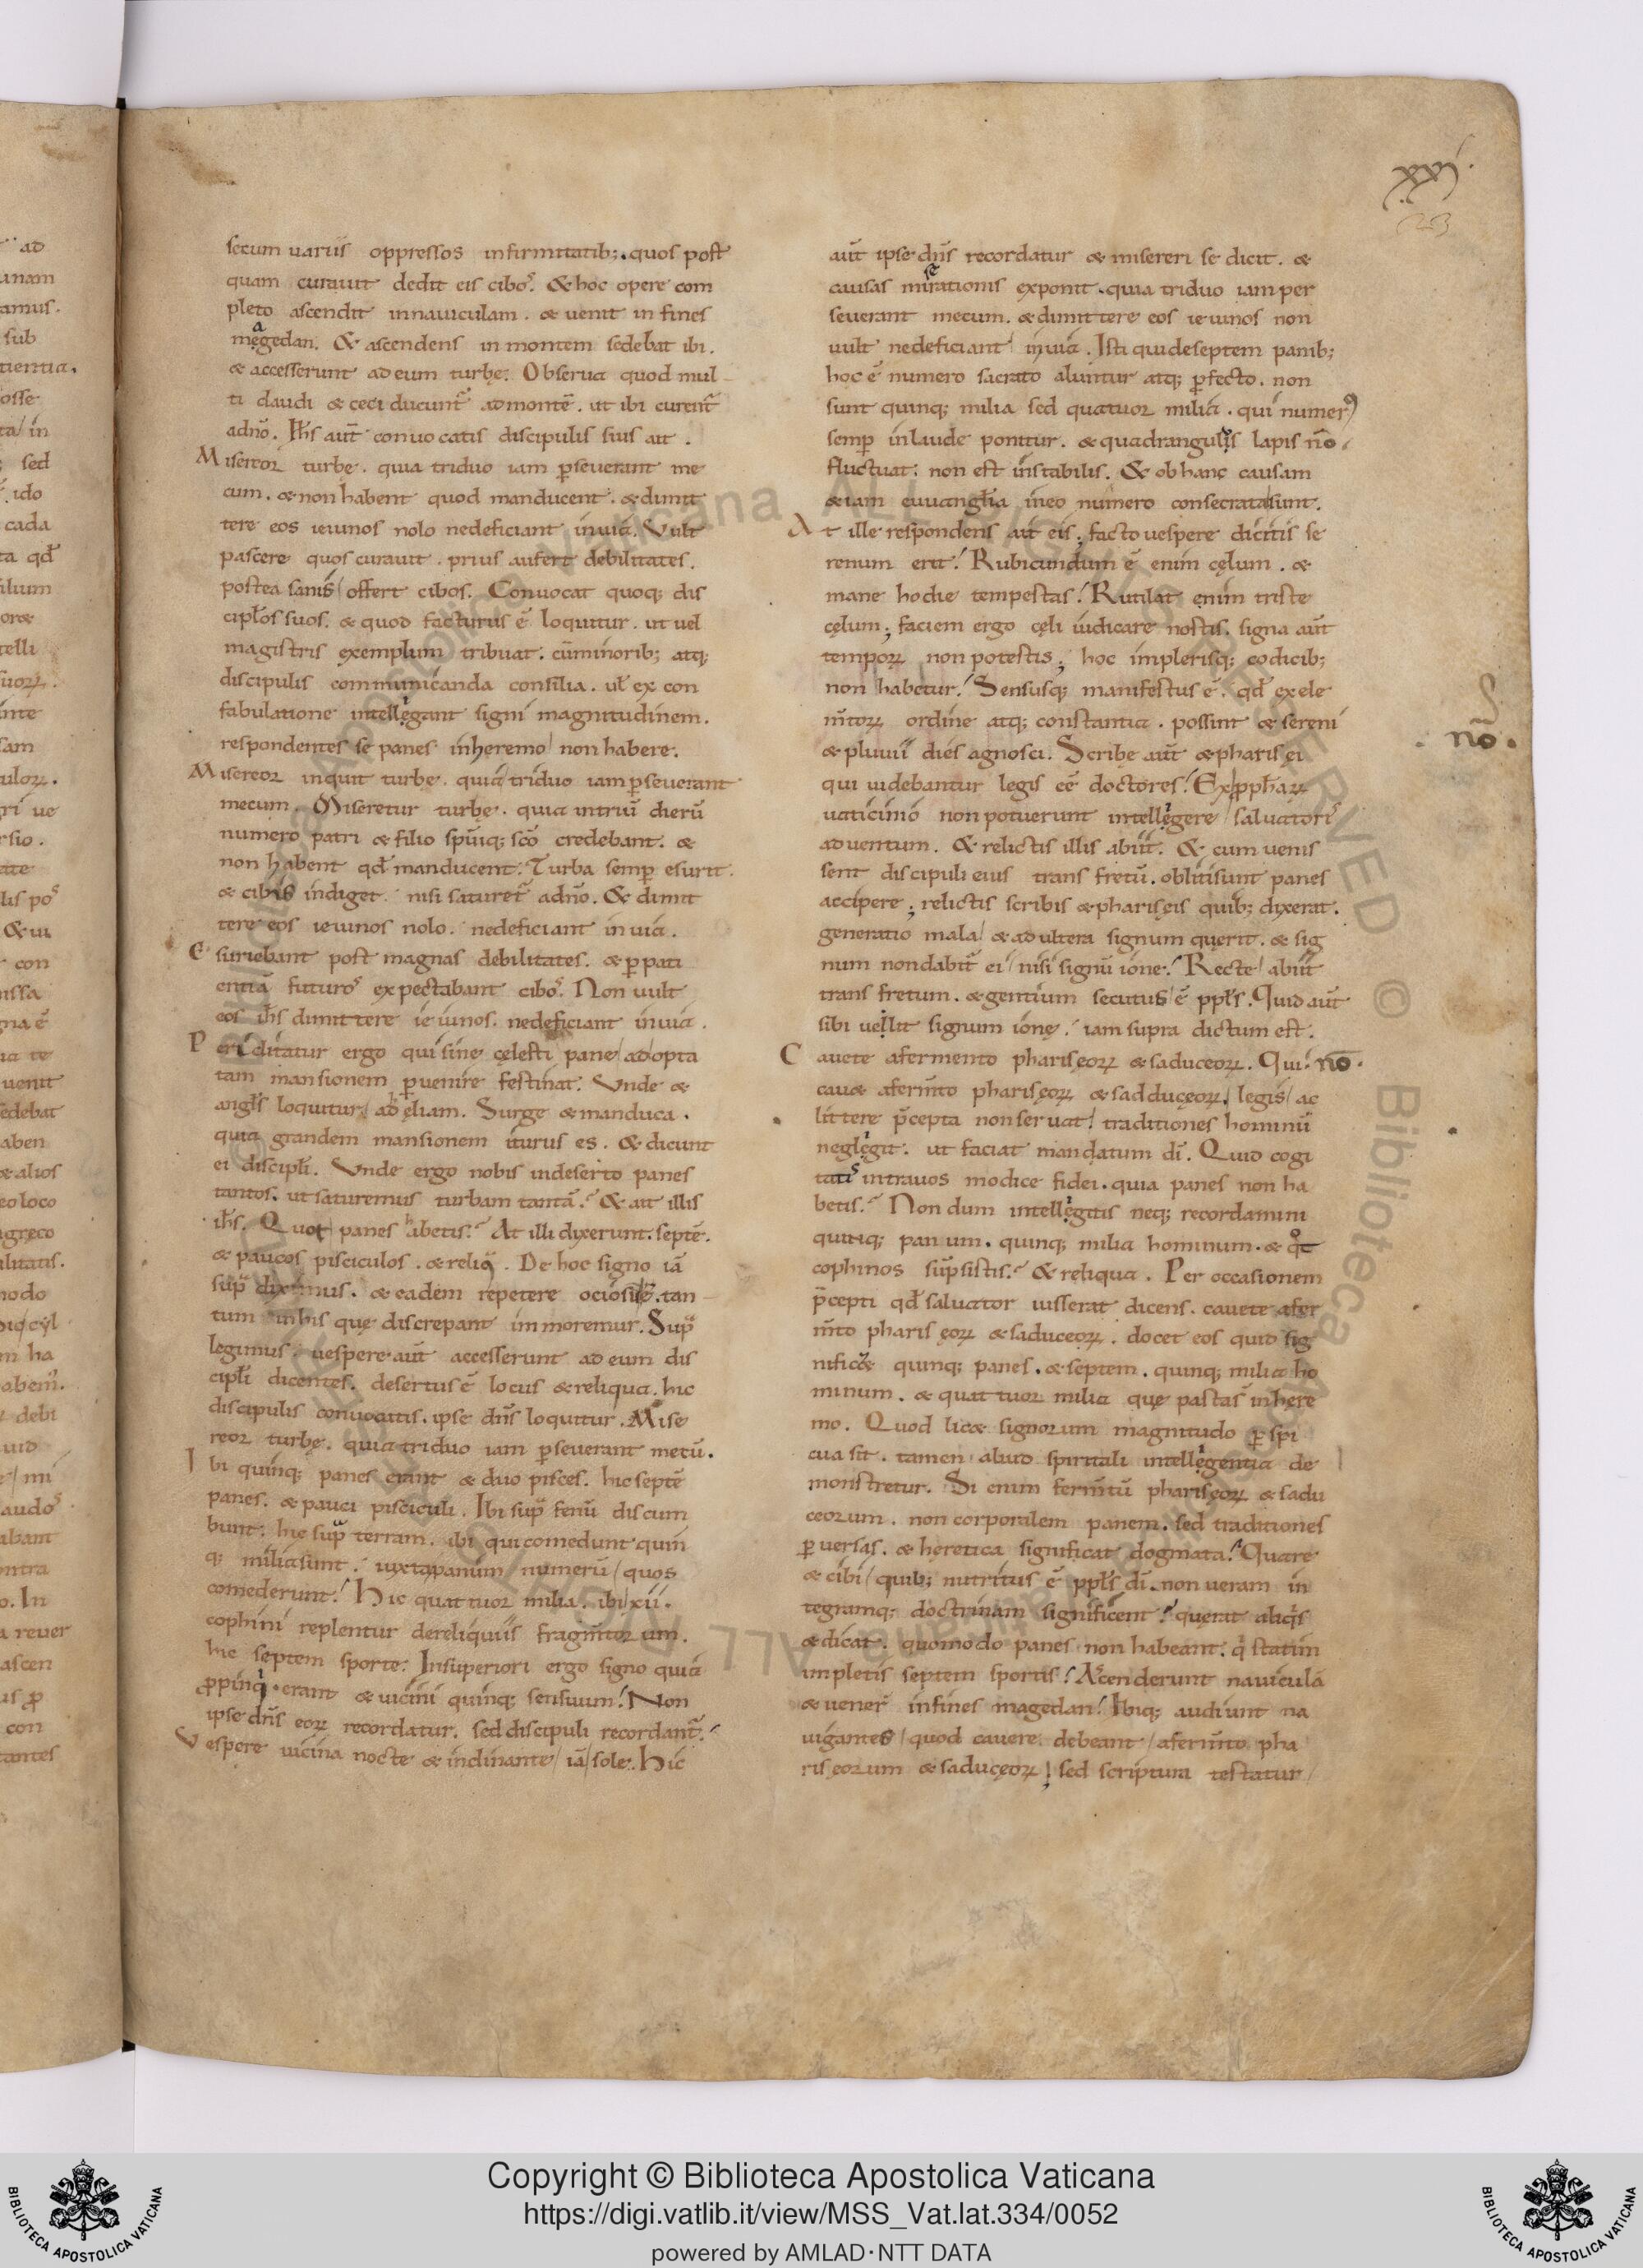 secum variis oppressos infirmitatib;. quos post
quam curauit dedit eis cibos. & hoc opere com
pleto ascendit innauiculam. & uenit in fines
magedan. & ascendens in montem sedebat ibi.
& accesserunt ad eum turbę. Obserua quod mul-
ti claudi & ceci ducunt̄ admontē. ut ibi curent̄
adnō. Ih̄s aut̄ conuocatis discipulis suis ait.
Misereor turbę. quia triduo iam p̱seuerant me
cum. & non habent quod manducent. & dimit
tere eos ieiunos nolo nedeficiant inuia. Vult
pascere quos curauit. prius aufert debilitates.
postea sanis offert cibos. Conuocat quoq; dis
cipl̄os suos. & quod facturus ē loquitur. ut uel
magistris exemplum tribuat. cūminorib; atq;
discipulis communicanda consilia. ul̄ ex con
fabulatione intellegant signi magnitudinem.
respondentes se panes inheremo non habere.
Misereor inquit turbę. quia triduo iam p̱seuerant
mecum. Miseretur turbę. quia intriū dierū
numero patri & filio spūiq; scō credebant. &
non habent qd̄ manducent. Turba semp̱ esurit.
& cibis indiget. nisi saturet̄ adnō. & dimit
tere eos ieiunos nolo. nedeficiant in uia.
Esuriebant post magnas debilitates. & p̱ pati
entiā futuros expectabant cibos. Non uult
eos ih̄s dimittere ieiunos. nedeficiant inuia.
Periclitatur ergo qui sine cęlesti pane ad opta
tam mansionem p̱uenire festinat. Vnde &
angl̄s loquitur ad hęliam. Surge & manduca.
quia grandem mansionem iturus es. & dicunt
ei discipl̄i. Vnde ergo nobis indeserto panes
tantos. ut saturemus turbam tantā? & ait illis
ih̄s. Quot panes habetis? At illi dixerunt. septē.
& paucos pisciculos. & reliq̄. De hoc signo iā
sup̄ diximus. & eadem repetere ociosū ē. tan-
tum in his quę discrepant immoremur. Sup̄
legimus. uespere aut̄ accesserunt ad eum dis
cipl̄i dicentes. desertus ē locus & reliqua. hic
discipulis conuocatis. ipse dn̄s loquitur. Mise
reor turbę. quia triduo iam p̱seuerant mecū.
Ibi quinq; panes erant & duo pisces. hic septē
panes. & pauci pisciculi. Ibi sup̄ fenū discum
bunt. hic sup̄ terram. ibi qui comedunt quin
q; milia sunt. iuxta panum numerū quos
comederunt! Hic quattuor milia. ibi xii.
cophini replentur dereliquiis fragm̄torum.
hic septem sporte. Insuperiori ergo signo quia
p̱pinq¹. erant & uicini quinq; sensuum! Non
ipse dn̄s eoꝝ recordatur. sed discipuli recordant̄.
Vespere uicina nocte & inclinante iā sole. Hic
aut̄ ipse dn̄s recordatur & misereri se dicit. &
causas miserationis exponit. quia triduo iam per
seuerant mecum. & dimittere eos ieiunos non
uult nedeficiant inuia. Isti qui de septem panib;
hoc ē numero sacrato aluntur atq; p̱fecto. non
sunt quinq; milia sed quatuor milia. qui numerꝰ
semp̱ inlaude ponitur. & quadrangulus lapis nō
fluctuat. non est instabilis. & ob hanc causam
&iam euuangl̄ia ineo numero consecrata sunt.
At ille respondens ait eis; facto uespere dicitis se
renum erit! Rubicundum ē enim cęlum. &
mane hodie tempestas! Rutilat enim triste
cęlum; faciem ergo cęli iudicare nostis. signa aut̄
tempoꝝ non potestis; hoc implerisq; codicib;
non habetur! Sensusq; manifestus ē. qd̄ ex ele
m̄toꝝ ordine atq; constantia. possint & sereni
& pluuii dies agnosci. Scribe aut̄ & pharisęi
qui uidebantur legis eē doctores! Ex p̱phaꝝ
uaticinio non potuerunt intellegere saluatoris
aduentum. & relictis illis abiit. & cum uenis
sent discipuli eius trans fretū. obliti sunt panes
accipere; relictis scribis & pharisęis quib; dixerat.
generatio mala & adultera signum querit. & sig
num nondabit̄ ei nisi signū ione! Recte abiit
trans fretum. & gentium secutus ē ppl̄s. Quid aut̄
sibi uellit signum ionę. iam supra dictum est.
Cauete afermento pharisęoꝝ & saduceoꝝ. Qui nō.
cau& aferm̄to pharisęoꝝ & sadducęoꝝ. legis ac
littere p̄cepta non seruat! traditiones hominū
neglegit. ut faciat mandatum dī. Quid cogi
tatis intrauos modice fidei. quia panes non ha
betis? Non dum intellegitis neq; recordamini
quinq; panum. quinq; milia hominum. & qo̊t
cophinos sūpsistis? & reliqua. Per occasionem
p̄cepti qd̄ saluator iusserat dicens. cauete afer
m̄to pharisęoꝝ & saduceoꝝ. docet eos quid sig
nific& quinq; panes. & septem. quinq; milia ho
minum. & quattuor milia quę pasta s̄ inhere
mo. Quod lic& signorum magnitudo p̱spi
cua sit. tamen aliud spiritali intellegentia de
monstretur. Si enim ferm̄tū pharisęoꝝ & sadu
ceorum. non corporalem panem. sed traditiones
p̱uersas. & heretica significat dogmata! Quare
& cibi quib; nutritus ē ppl̄s dī. non ueram in
tegramq; doctrinam significent? querat aliq¹s
& dicat. quomodo panes non habeant. q¹ statim
impletis septem sportis! Ascenderunt nauiculā
& uener̄ infines magedan! Ibiq; audiunt na
uigantes quod cauere debeant aferm̄to pha
risęorum & saducęoꝝ! sed scriptura testatur
xxi.
23
. nō.
Copyright © Biblioteca Apostolica Vaticana
https://digi.vatlib.it/view/MSS_Vat.lat.334/0052
powered by AMLAD·NTT DATA
BIBLIOTECA APOSTOLICA VATICANA
BIBLIOTECA APOSTOLICA VATICANA